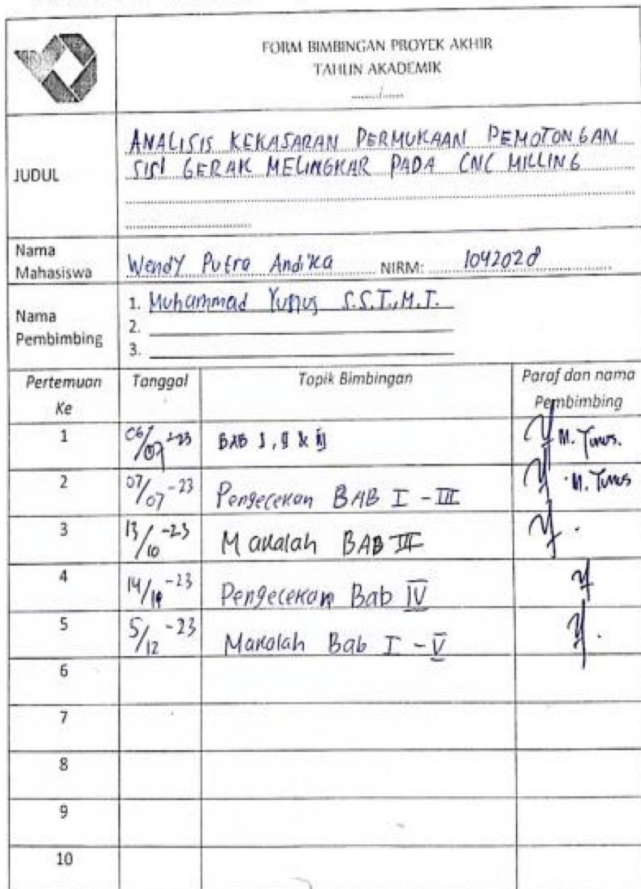 FORM BIMBINGAN PROYEK AKHIR
TAHUN AKADEMIK
......../........
JUDUL
ANALISIS KEKASARAN PERMUKAAN PEMOTONGAN
SISI GERAK MELINGKAR PADA CNC MILLING
Nama Mahasiswa
Wendy Putra Andika NIRM: 1042028
Nama Pembimbing
1. Muhammad Yunus S.S.T., M.T.
2.
3.
Pertemuan Ke Tanggal Topik Bimbingan Paraf dan nama Pembimbing
1 06/07-23 BAB I, II & III M. Yunus.
2 07/07-23 Pengecekan BAB I - III M. Yunus
3 13/10-23 Makalah BAB III
4 Pengecekan Bab IV
5 5/12-23 Makalah Bab I - V
6
7
8
9
10